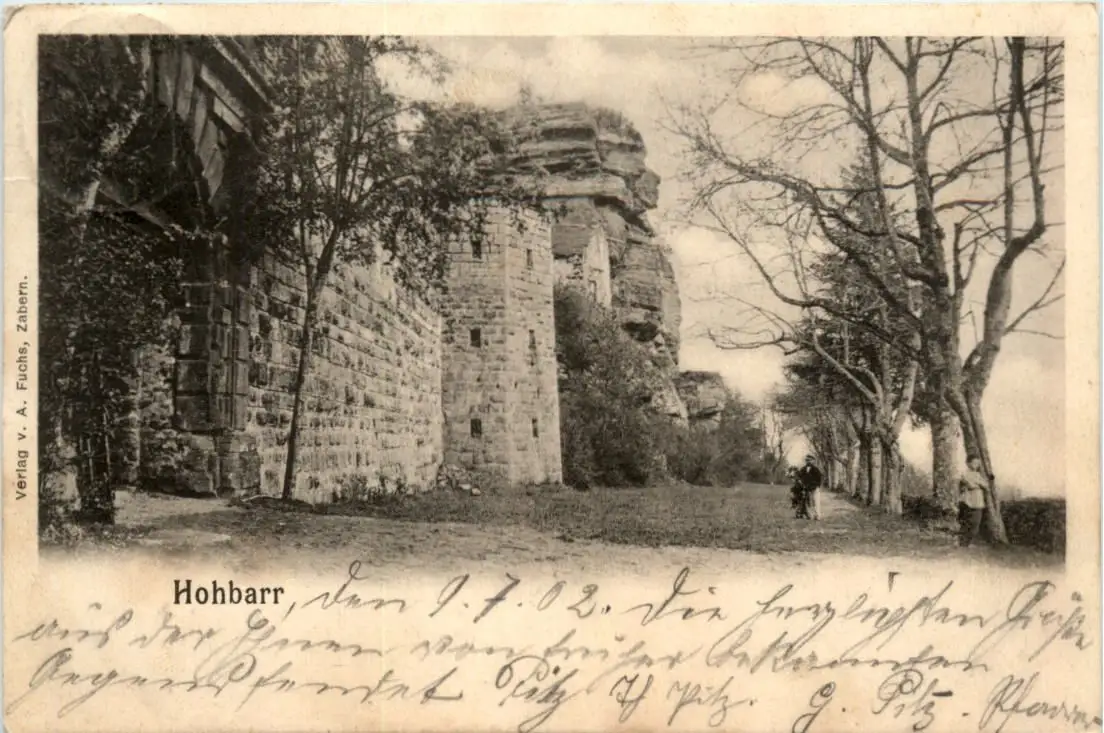 Verlag v. A. Fuchs, Zabern.
Hohbarr, den 9.7.02. Die herzlichsten Grüße
aus der Ihnen von früher bekannten
Gegend sendet Pitz G. Pitz. Pfarrer